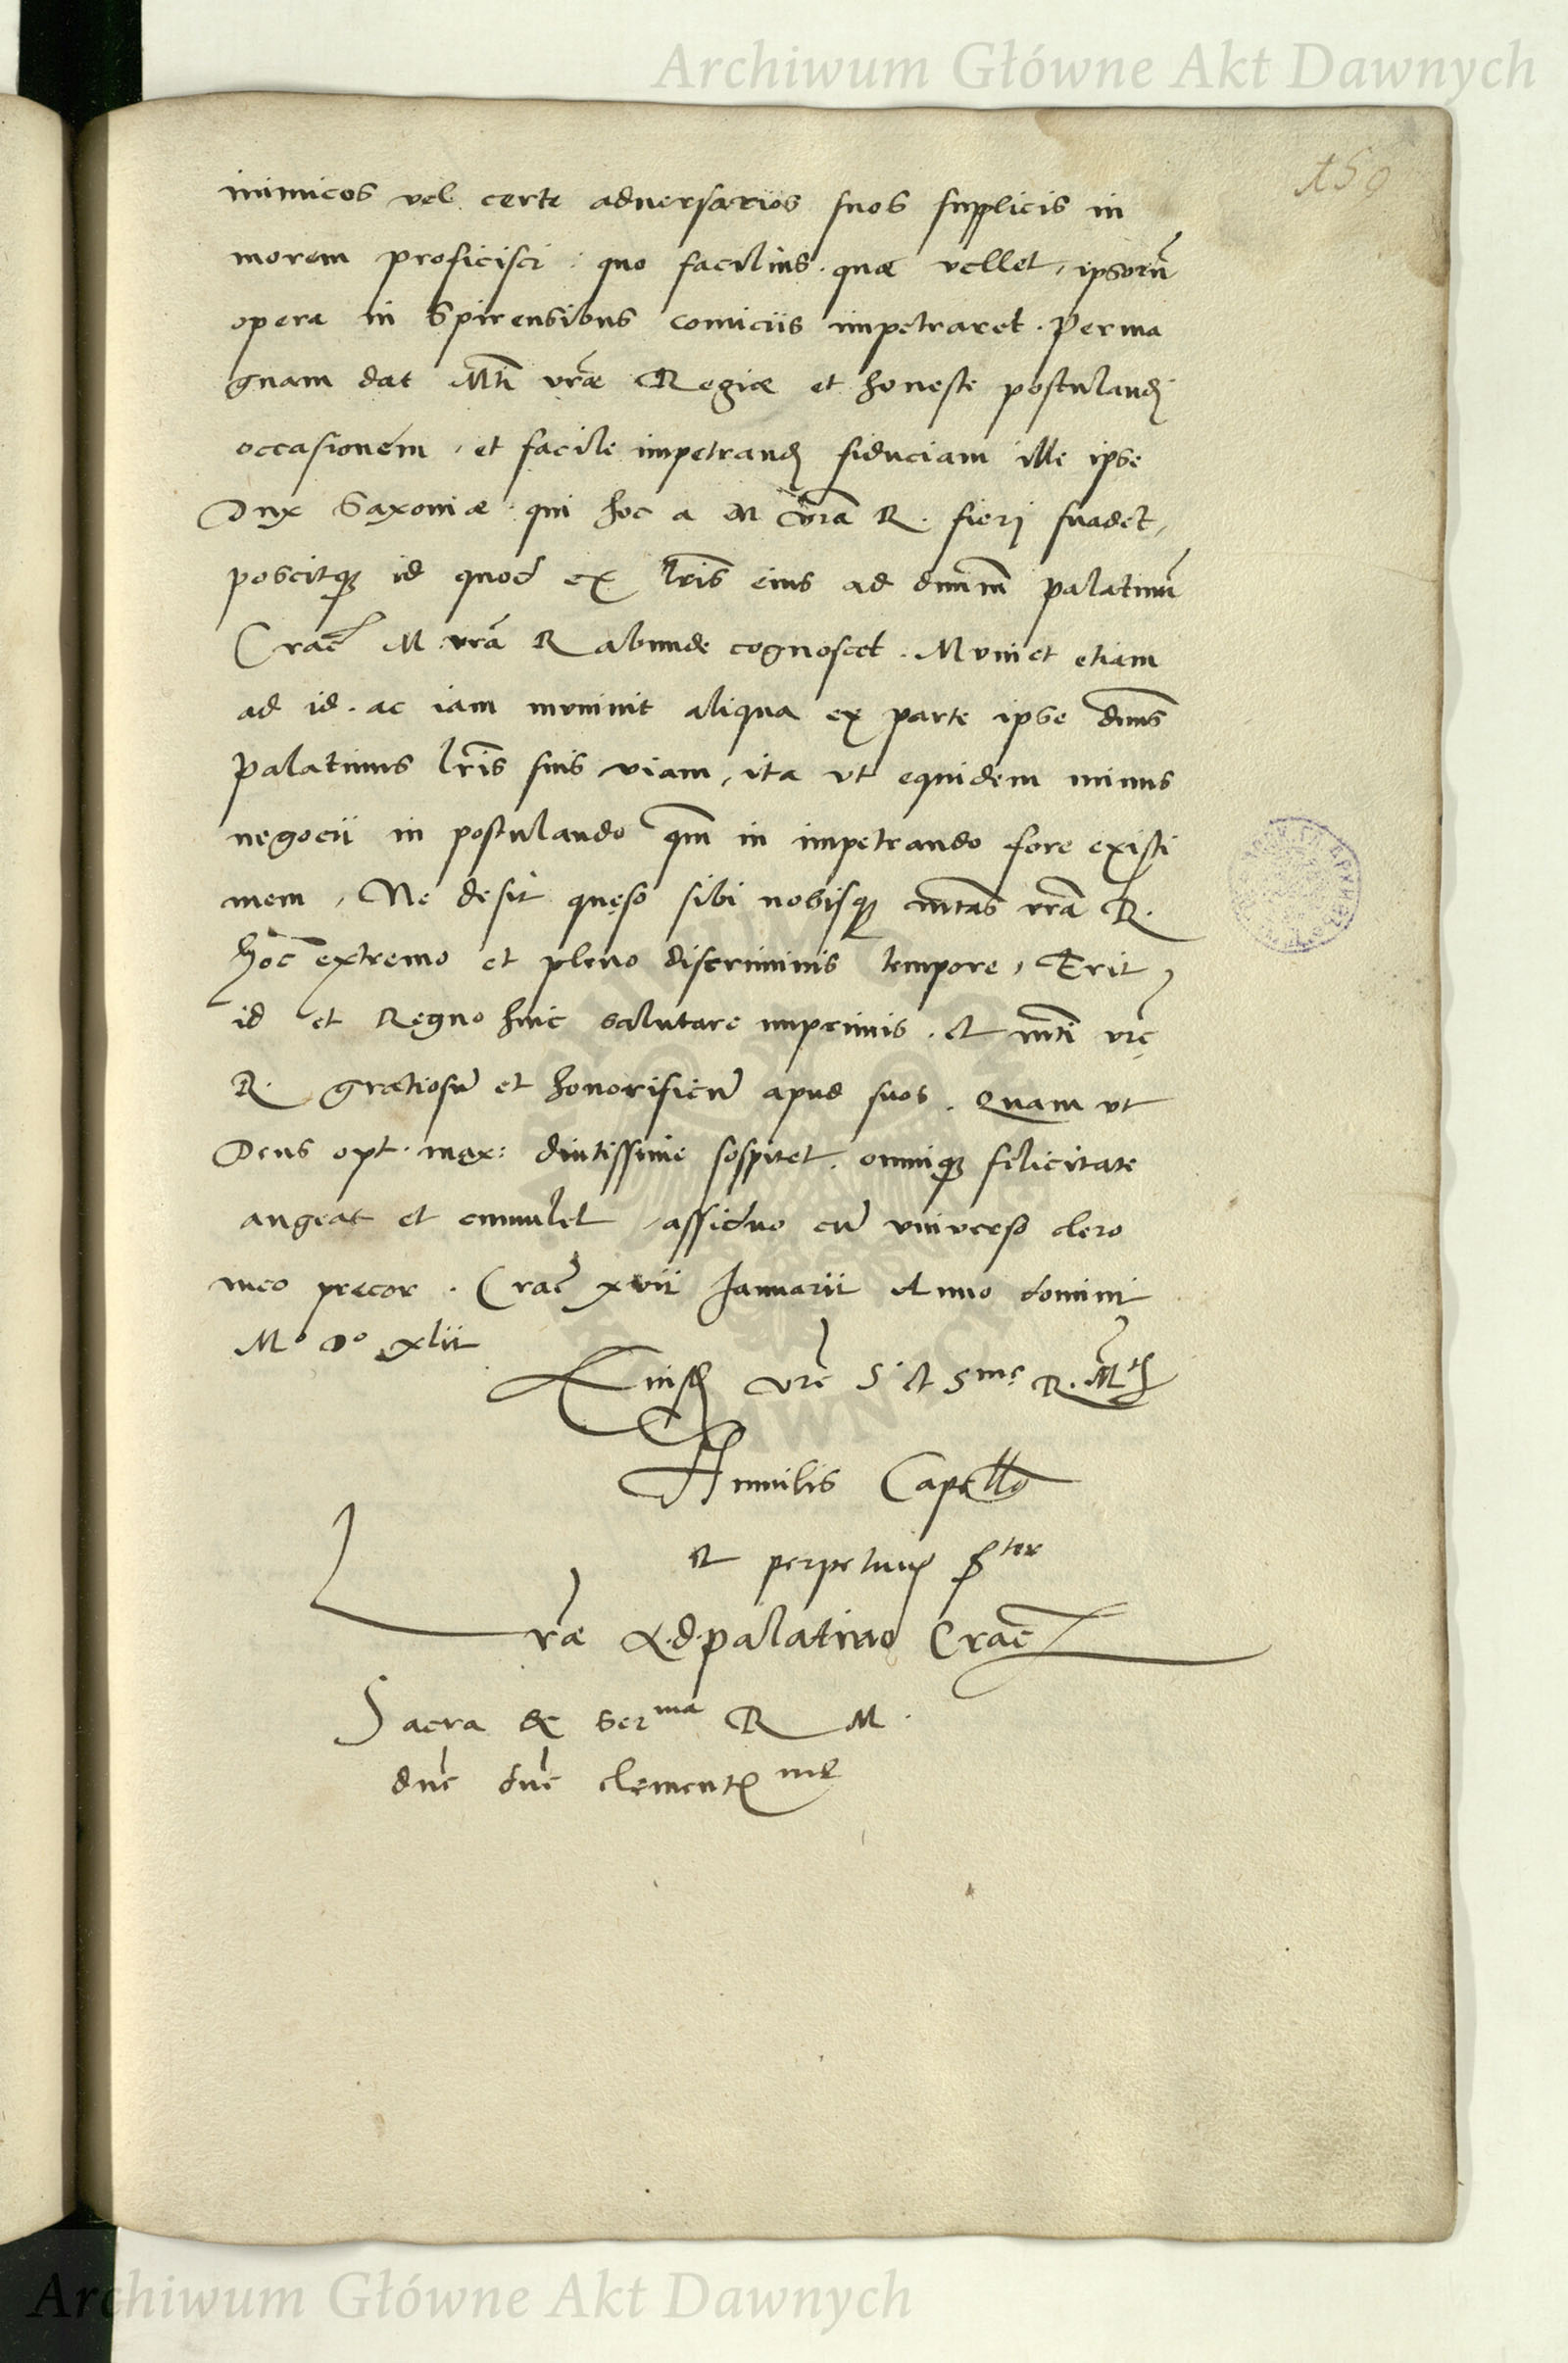 Archiwum Główne Akt Dawnych
150
inimicos vel certe adversarios suos supplicis in
morem proficisci : quo facilius . quæ vellet, ipsorũ
opera in Spirensibus comiciis impetraret . Perma
gnam dat Mti vræ Regiæ et honeste postulandj
occasionem, et facile impetrandj fiduciam ille ipse
Dux Saxoniæ : qui hoc a M vrã R . fierj suadet,
poscitq; id quod ex lris eius ad dnum palatinũ
Crac̃ M vrã R abunde cognoscet . Muniet etiam
ad id . ac iam munivit aliqua ex parte ipse dnus
Palatinus lris suis viam, ita vt equidem minus
negocii in postulando qm̃ in impetrando fore existi
mem, Ne desit queso sibi nobisq; mtas vrã R.
hoc extremo et pleno discriminis tempore, Erit
id et Regno huic salutare imprimis . et mti vrę
R. gratiosũ et honorificũ apud suos . Quam vt
Deus opt. max: diutissime sospitet . omniq; felicitate
augeat et cumulet, assiduo cũ universo clero
meo precor . Crac̃ xvii Januarii Anno domini
Mo Do xlii
Eiusd vrẽ S. et Smę R. Mtis
Humilis Capello
et perpetuus
vræ palatino Crac̃
Sacra & Serma R M .
dne dne clementme
Archiwum Główne Akt Dawnych